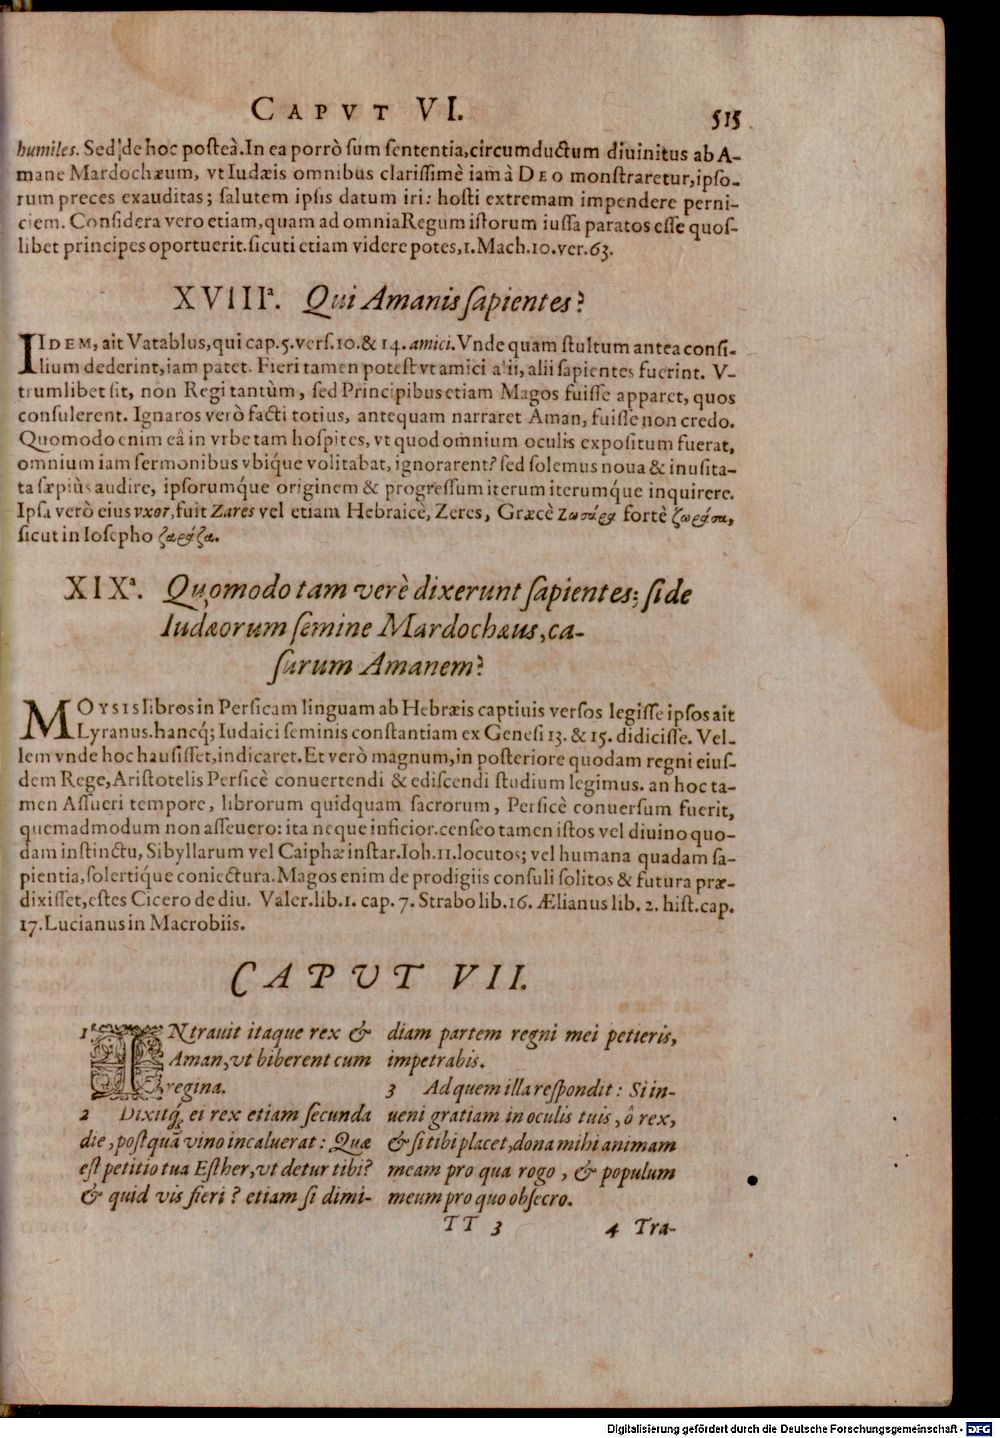 CAPVT VI.
515
humiles. Sed de hoc posteà. In ea porrò sum sententia, circumductum diuinitus ab A-
mane Mardochæum, vt Iudæis omnibus clarissimè iam à DEO monstraretur, ipso-
rum preces exauditas; salutem ipsis datum iri: hosti extremam impendere perni-
ciem. Considera vero etiam, quam ad omnia Regum istorum iussa paratos esse quos-
libet principes oportuerit. sicuti etiam videre potes, 1. Mach. 10. ver. 63.
XVIIIª. Qui Amanis sapientes?
IIDEM, ait Vatablus, qui cap. 5. vers. 10. & 14. amici. Vnde quam stultum antea consi-
lium dederint, iam patet. Fieri tamen potest vt amici alii, alii sapientes fuerint. V-
trumlibet sit, non Regi tantùm, sed Principibus etiam Magos fuisse apparet, quos
consulerent. Ignaros verò facti totius, antequam narraret Aman, fuisse non credo.
Quomodo enim eâ in vrbe tam hospites, vt quod omnium oculis expositum fuerat,
omnium iam sermonibus vbíque volitabat, ignorarent? sed solemus noua & inusita-
ta sæpiùs audire, ipsorumque originem & progressum iterum iterumque inquirere.
Ipsa verò eius vxor, fuit Zares vel etiam Hebraicè, Zeres, Græcè Ζωσάρα fortè ζωράσα,
sicut in Iosepho ζαράζα.
XIXª. Quomodo tam verè dixerunt sapientes; si de
Iudæorum semine Mardochæus, ca-
surum Amanem?
MOYSIS libros in Persicam linguam ab Hebræis captiuis versos legisse ipsos ait
Lyranus. hancq; Iudaici seminis constantiam ex Genesi 13. & 15. didicisse. Vel-
lem vnde hoc hausisset, indicaret. Et verò magnum, in posteriore quodam regni eius-
dem Rege, Aristotelis Persicè conuertendi & ediscendi studium legimus. an hoc ta-
men Assueri tempore, librorum quidquam sacrorum, Persicè conuersum fuerit,
quemadmodum non asseuero: ita neque inficior. censeo tamen istos vel diuino quo-
dam instinctu, Sibyllarum vel Caiphæ instar. Ioh. 11. locutos; vel humana quadam sa-
pientia, solertíque coniectura. Magos enim de prodigiis consuli solitos & futura præ-
dixisset, estes Cicero de diu. Valer. lib. 1. cap. 7. Strabo lib. 16. Ælianus lib. 2. hist. cap.
17. Lucianus in Macrobiis.
CAPUT VII.
1 INtrauit itaque rex &
Aman, vt biberent cum
regina.
2 Dixitq́; ei rex etiam secunda
die, postquã vino incaluerat: Quæ
est petitio tua Esther, vt detur tibi?
& quid vis fieri? etiam si dimi-
diam partem regni mei petieris,
impetrabis.
3 Ad quem illa respondit: Si in-
ueni gratiam in oculis tuis, ô rex,
& si tibi placet, dona mihi animam
meam pro qua rogo, & populum
meum pro quo obsecro.
TT 3
4 Tra-
Digitalisierung gefördert durch die Deutsche Forschungsgemeinschaft - DFG